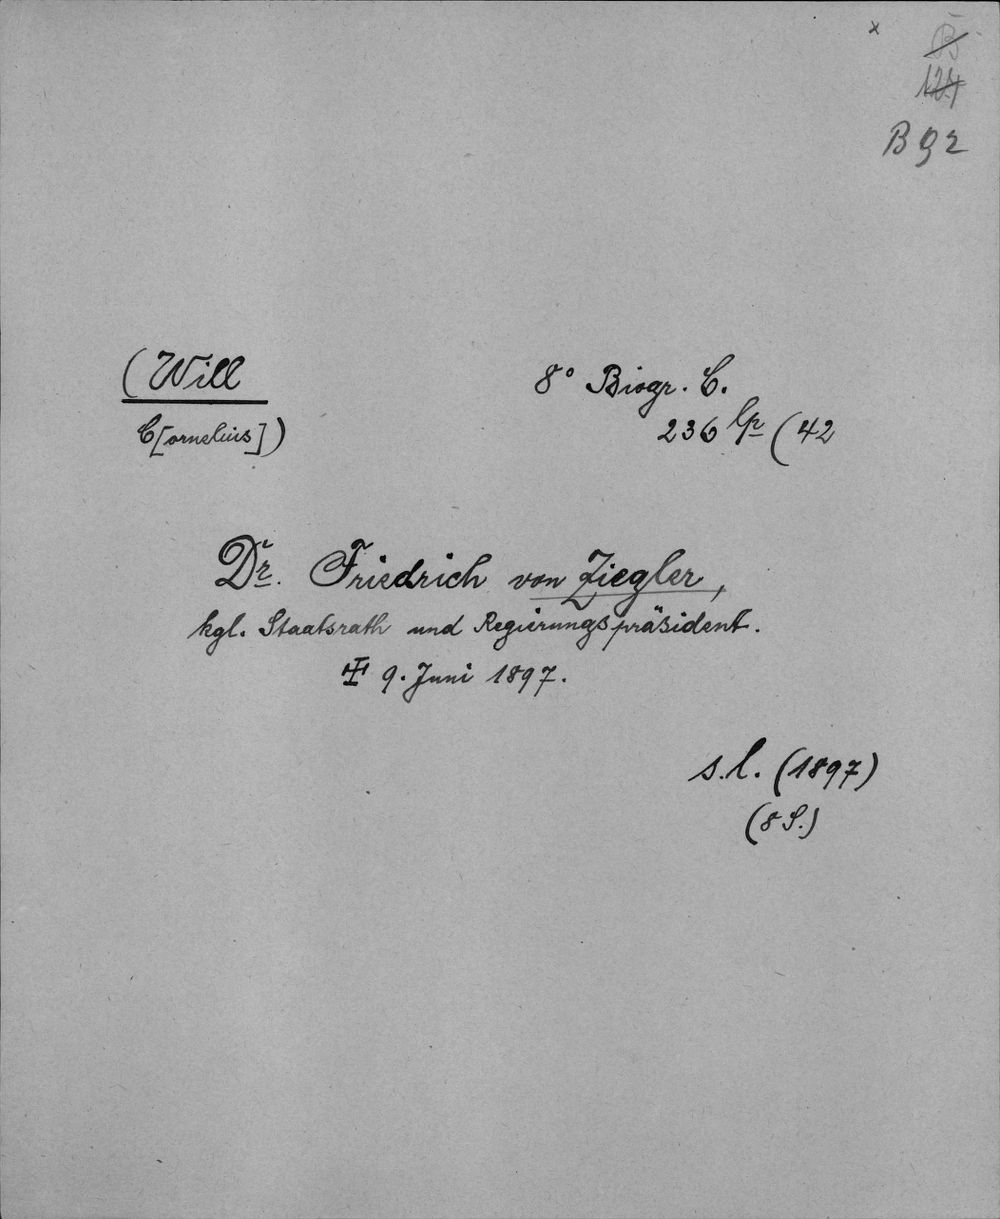 x
B
124
B 92
(Will
C[ornelius])
8° Biogr. C.
236 lp (42
Dr. Friedrich von Ziegler,
kgl. Staatsrath und Regierungspräsident.
9. Juni 1897.
s. l. (1897)
(8 S.)